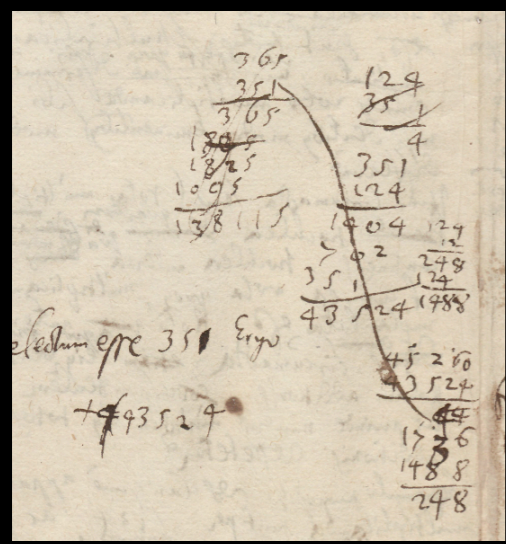 365
351
365
1825
1095
138115
124
35 1
4
351
124
1404
702
351
43524
124
12
248
124
1488
electum esse 351 Ergo
43524
45260
43524
1736
1488
248